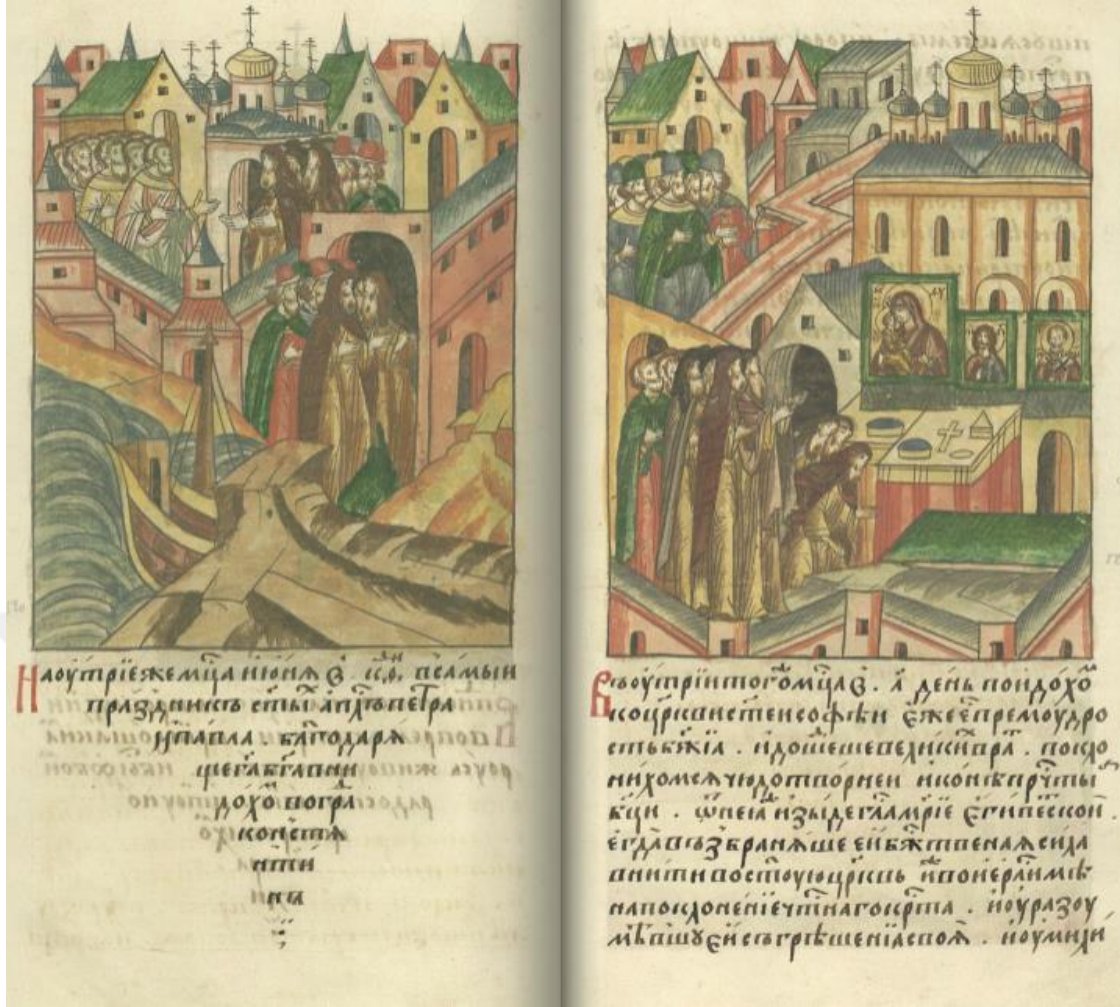 На оутрїе же мц҃а июня є҃. к҃ѳ, в самыи
праздникъ ст҃ы ап҃лъ петра
и павла бл҃годаря
ще г҃а б҃га вни
дохо во гра
констя
нти
нъ
Въ оутрїи того мц҃а є҃. л҃ день поидохо
ко цр҃кви ст҃еи софѣи еже є҃ премоудро
сть бж҃їа . и дошеше великих вра . покло
нихомся чюдотворнеи иконѣ прч҃ты
б҃ци . ѿ неяже изыде гла мр҃їе египескои .
егда възбраняше еи бж҃твеная сила
внити во ст҃оую цр҃квь во иерл҃имѣ
на поклоненїе чт҃наго кр҃та . и оуразоу
мѣвшꙋ еи съгрѣшенїя своя . и оумили